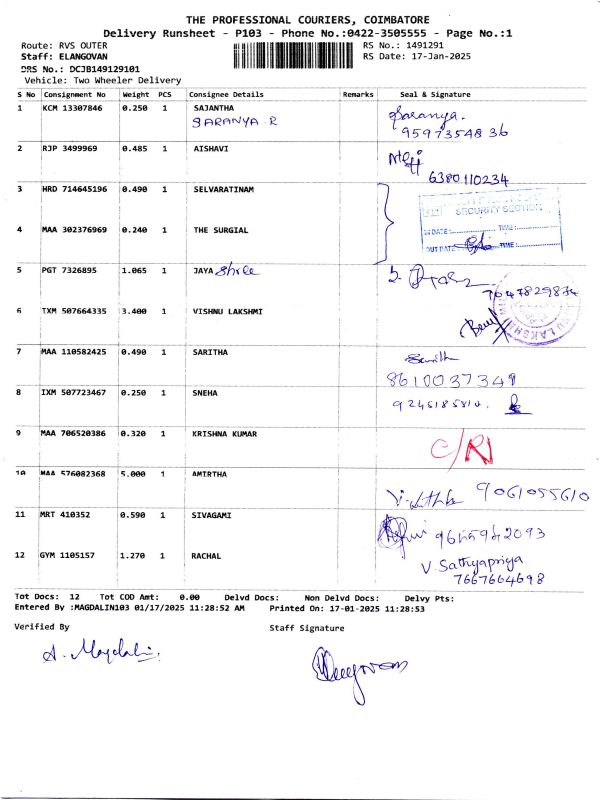 THE PROFESSIONAL COURIERS, COIMBATORE
Delivery Runsheet - P103 - Phone No.:0422-3505555 - Page No.:1
Route: RVS OUTER RS No.: 1491291
Staff: ELANGOVAN RS Date: 17-Jan-2025
DRS No.: DCJB149129101
Vehicle: Two Wheeler Delivery
S No Consignment No Weight PCS Consignee Details Remarks Seal & Signature
1 KCM 13307846 0.250 1 SAJANTHA Saranya.
SARANYA R 9597354836
2 RJP 3499969 0.485 1 AISHAVI
6380110234
3 HRD 714645196 0.490 1 SELVARATINAM
SECURITY SECTION
4 MAA 302376969 0.240 1 THE SURGIAL IN DATE: TIME:
OUT DATE: TIME:
5 PGT 7326895 1.065 1 JAYA Shree
7647829874
6 TXM 507664335 3.400 1 VISHNU LAKSHMI
7 MAA 110582425 0.490 1 SARITHA
8610037349
8 IXM 507723467 0.250 1 SNEHA
9245185814.
9 MAA 706520386 0.320 1 KRISHNA KUMAR C/R
10 MAA 576082368 5.000 1 AMIRTHA
9061055610
11 MRT 410352 0.590 1 SIVAGAMI
9655942093
12 GYM 1105157 1.270 1 RACHAL V. Sathyapriya
7667664698
Tot Docs: 12 Tot COD Amt: 0.00 Delvd Docs: Non Delvd Docs: Delvy Pts:
Entered By :MAGDALIN103 01/17/2025 11:28:52 AM Printed On: 17-01-2025 11:28:53
Verified By Staff Signature
A. Magdalin